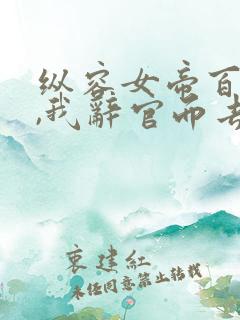 纵容女帝百
,我辞官而去
衷建红
未经同意禁止转载